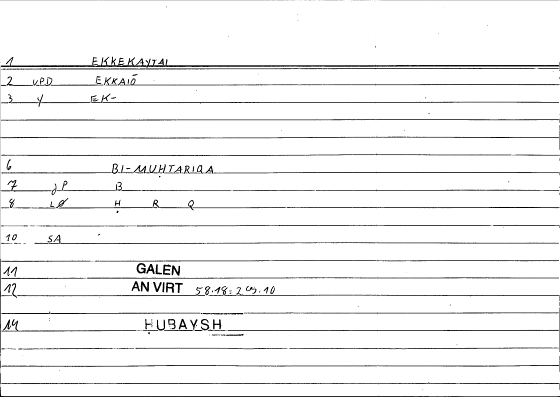 1 EKKEKAYTAI
2 vPD EKKAIŌ
3 Y EK-
6 BI-MUḤTARIQA
7 jP B
8 LØ Ḥ R Q
10 SA
11 GALEN
12 AN VIRT
14 ḤUBAYSH